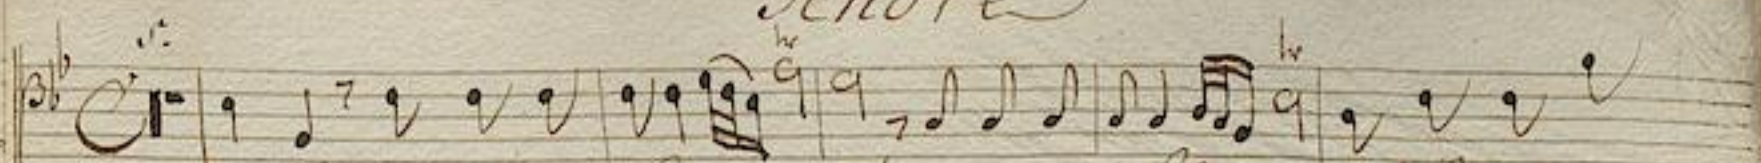 Tenore
tr tr